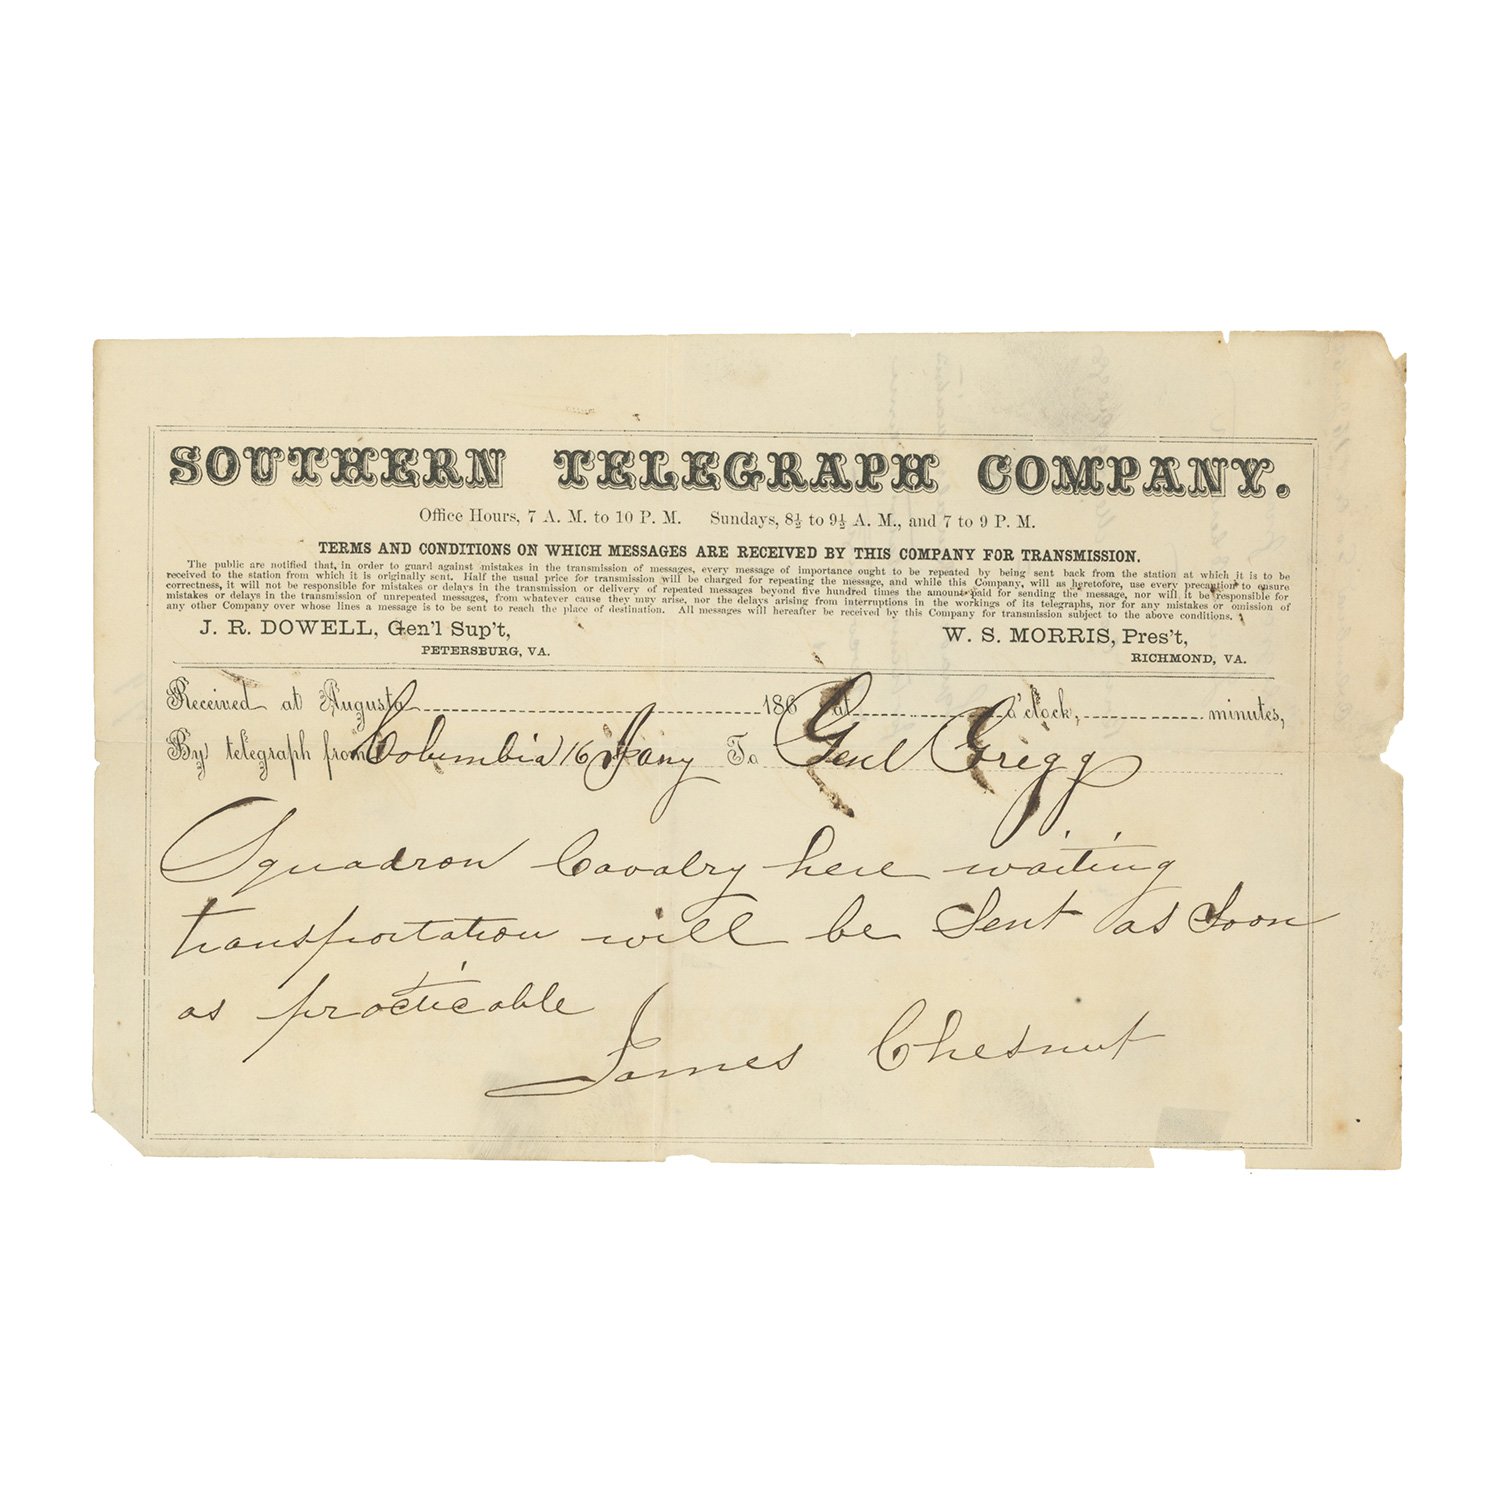 SOUTHERN TELEGRAPH COMPANY.
Office Hours, 7 A. M. to 10 P. M. Sundays, 8½ to 9½ A. M., and 7 to 9 P. M.
TERMS AND CONDITIONS ON WHICH MESSAGES ARE RECEIVED BY THIS COMPANY FOR TRANSMISSION.
The public are notified that, in order to guard against mistakes in the transmission of messages, every message of importance ought to be repeated by being sent back from the station at which it is to be
received to the station from which it is originally sent. Half the usual price for transmission will be charged for repeating the message, and while this Company, will as heretofore, use every precaution to ensure
correctness, it will not be responsible for mistakes or delays in the transmission or delivery of repeated messages beyond five hundred times the amount paid for sending the message, nor will it be responsible for
mistakes or delays in the transmission of unrepeated messages, from whatever cause they may arise, nor the delays arising from interruptions in the workings of its telegraphs, nor for any mistakes or omission of
any other Company over whose lines a message is to be sent to reach the place of destination. All messages will hereafter be received by this Company for transmission subject to the above conditions.
J. R. DOWELL, Gen'l Sup't, W. S. MORRIS, Pres't,
PETERSBURG, VA. RICHMOND, VA.
Received at Augusta 186 at o'clock, minutes,
By telegraph from Columbia 16 Jany To Genl Gregg
Squadron Cavalry here waiting
transportation will be Sent as Soon
as practicable
James Chesnut